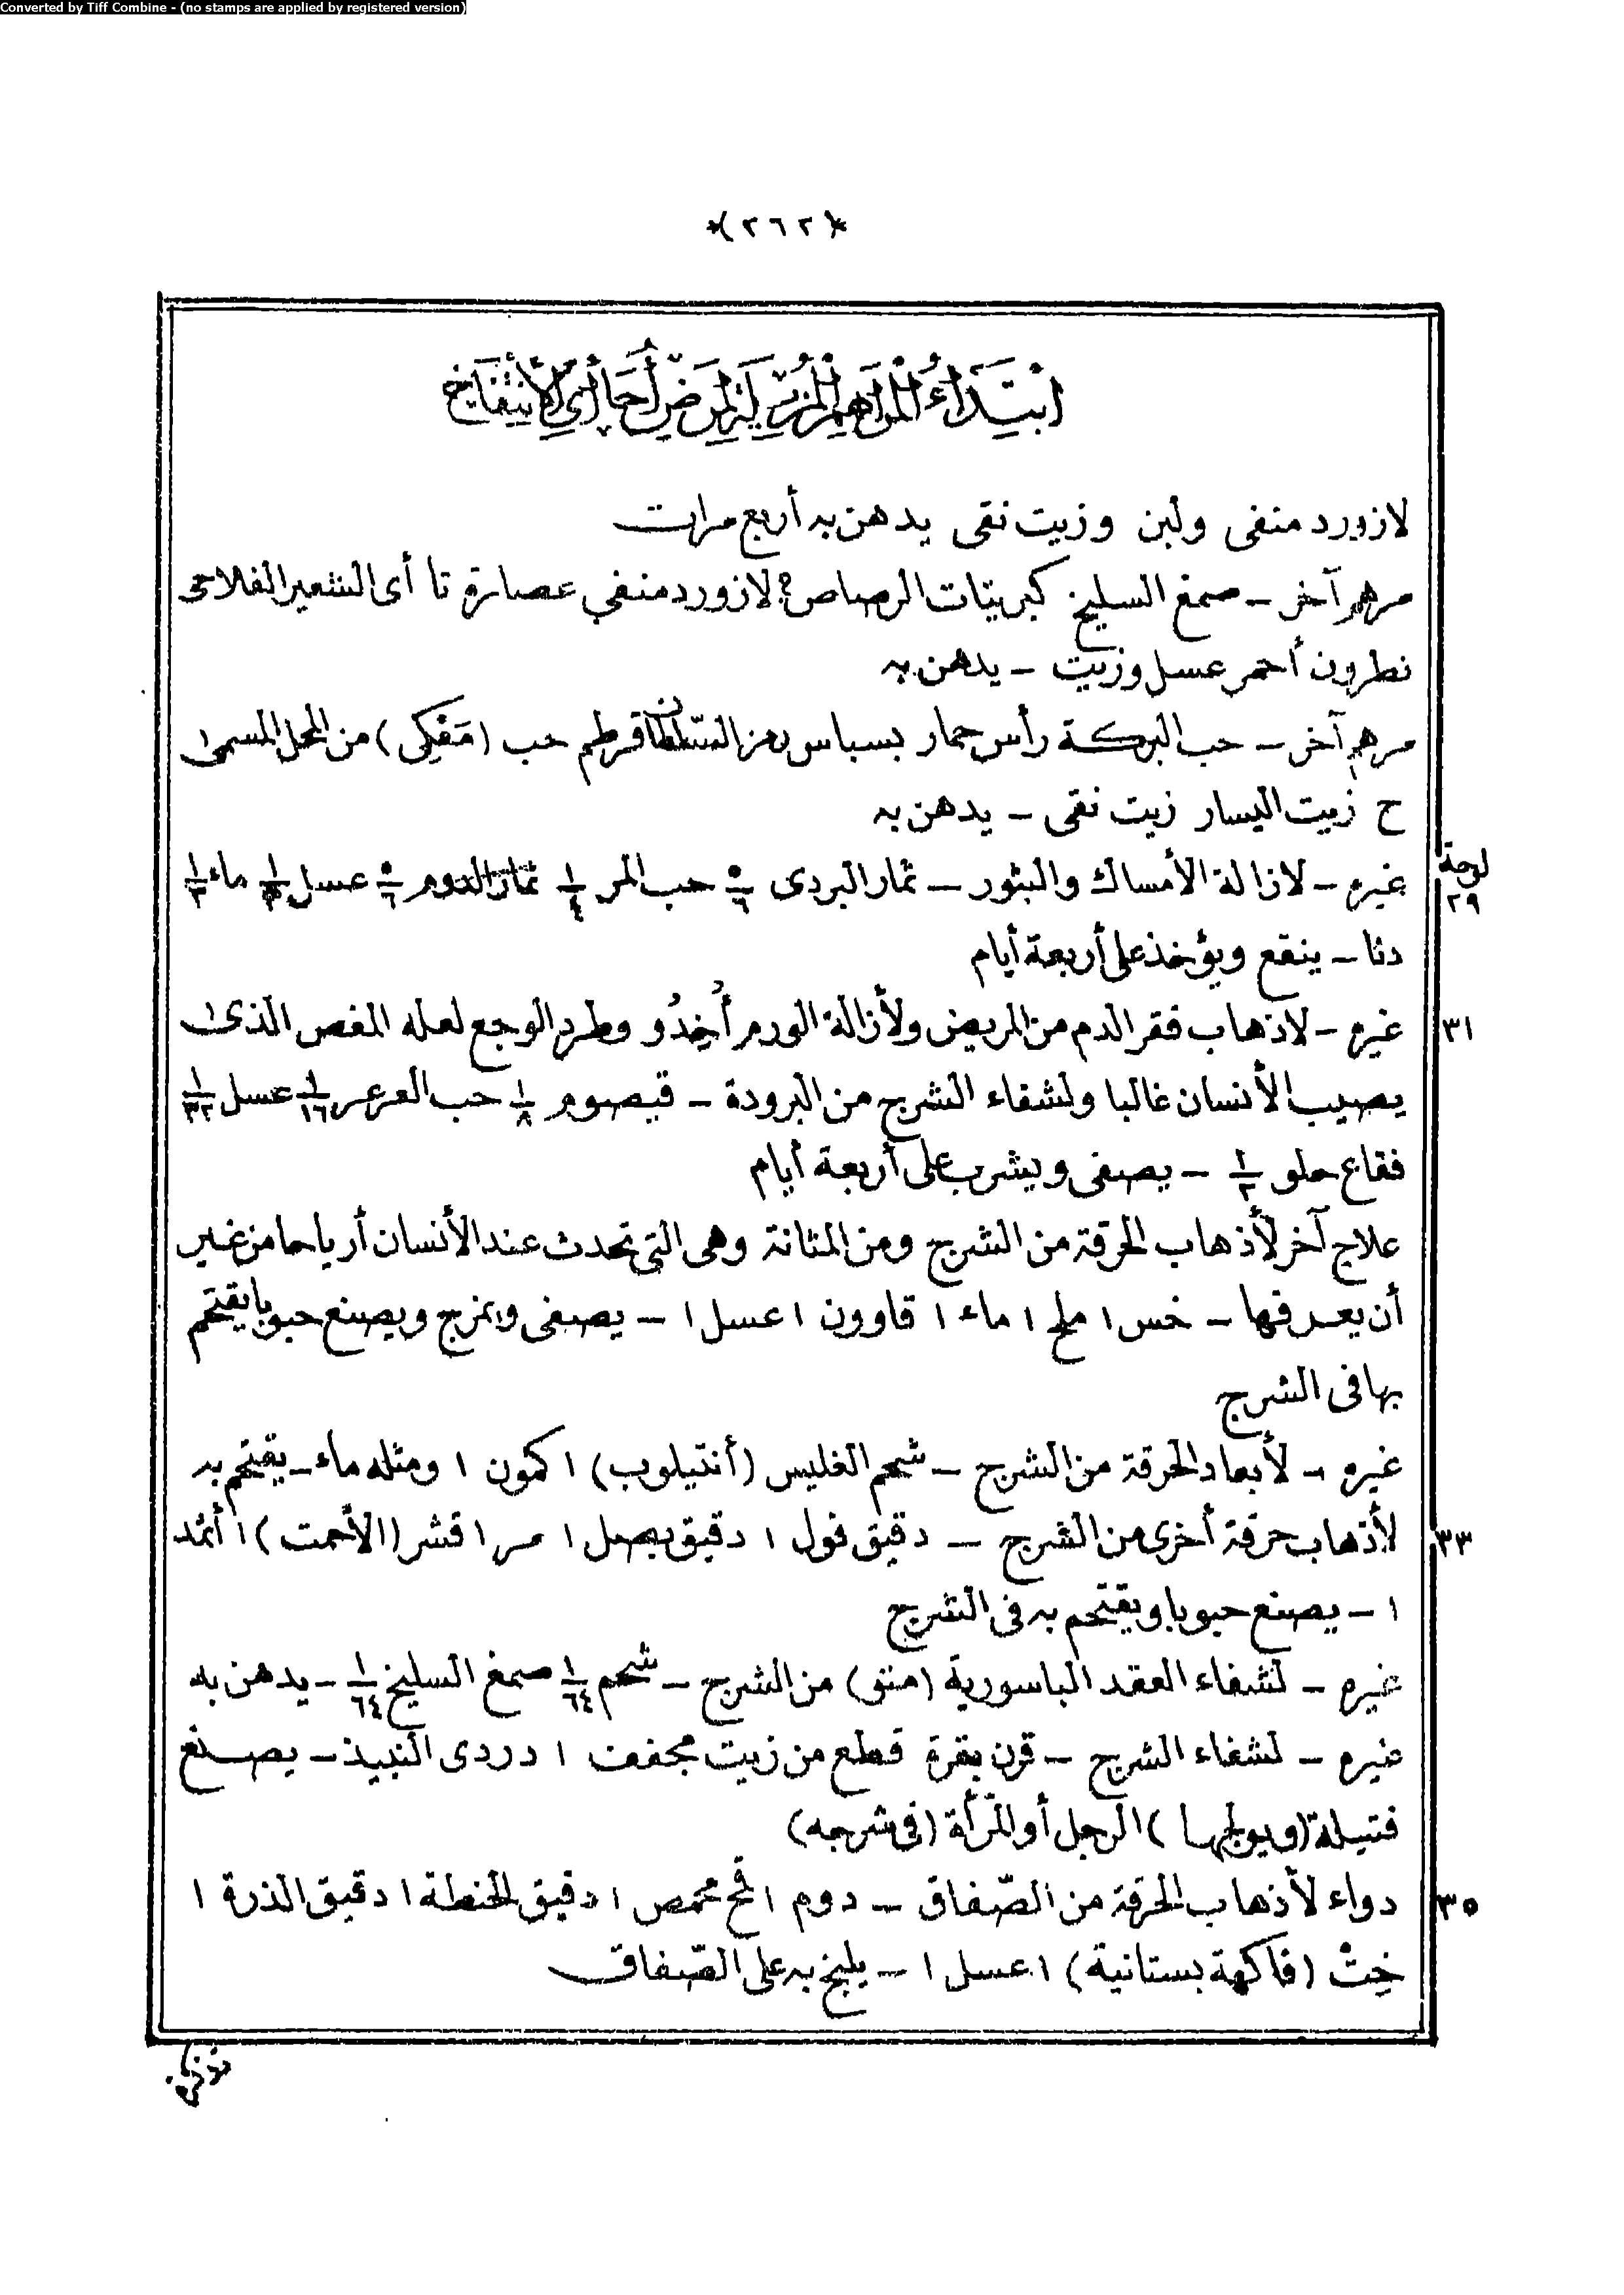 Converted by Tiff Combine - (no stamps are applied by registered version)
*(٢٦٢)*
ابْتِدَاءُ الْمَرَاهِمِ الْمُزِيلَةِ لِمَرَضِ أُحَا أَىِ الْأَنْتِفَاخِ
لازورد منفى ولبن وزيت نقى يدهن به أربع مرات
مرهم آخر – صمغ السليخ كبريتات الرصاص؟ لازورد منفي عصارة تا أى الشعير الفلاحى
نطرون أحمر عسل وزيت – يدهن به
مرهم آخر – حب البركة رأس حمار بسباس قرطم حب (مَفْكِى) من المحل المسمى
ح زيت اليسار زيت نقى – يدهن به
لوحة
٢٩
غيره – لازالة الأمساك والبثور – ثمار البردى ٥/٦ حب المر ١/٤ ثمار الدوم ٥/٦ عسل ماء ١/٣
دنا – ينقع ويؤخذ على أربعة أيام
٣١
غيره – لاذهاب فقر الدم من المريض ولأزالة الورم أُخِدُو وطرد الوجع لعله المغص الذى
يصيب الأنسان غالبا ولشفاء الشرج من البرودة – قيصوم ١/٨ حب العرعر ١/١٦ عسل ١/٣٢
فقاع حلو ١/٢ – يصفى ويشرب على أربعة أيام
علاج آخر لأذهاب الحرقة من الشرج ومن المثانة وهى التى تحدث عند الأنسان أرياحا من غير
أن يعرفها – خس ١ ملح ١ ماء ١ قاوون ١ عسل ١ – يصفى ويمزج ويصنع حبوبا يقتحم
بها فى الشرج
غيره – لأبعاد الحرقة من الشرج – شحم الغليس (أنتيلوب) ١ كمون ١ ومثله ماء – يقتحم به
٣٣
لأذهاب حرقة أخرى من الشرج – دقيق فول ١ دقيق بصل ١ مر ١ قشر (الأحمت) ١ أثمد
١ – يصنع حبوبا ويقتحم به فى الشرج
غيره – لشفاء العقد الباسورية (منتو) من الشرج – شحم ١/٦٤ صمغ السليخ ١/٦٤ – يدهن به
غيره – لشفاء الشرج – قرن بقرة قطع من زيت مجففت ١ دردى النبيذ – يصنع
فتيلة (ويولجها) الرجل أو المرأة (فى شرجه)
٣٥
دواء لأذهاب الحرقة من الصّفاق – دوم ١ قمح محمص ١ دقيق الحنطة ١ دقيق الذرة ١
خِتْ (فاكهة بستانية) ١ عسل ١ – يلبخ به على الصّفاق